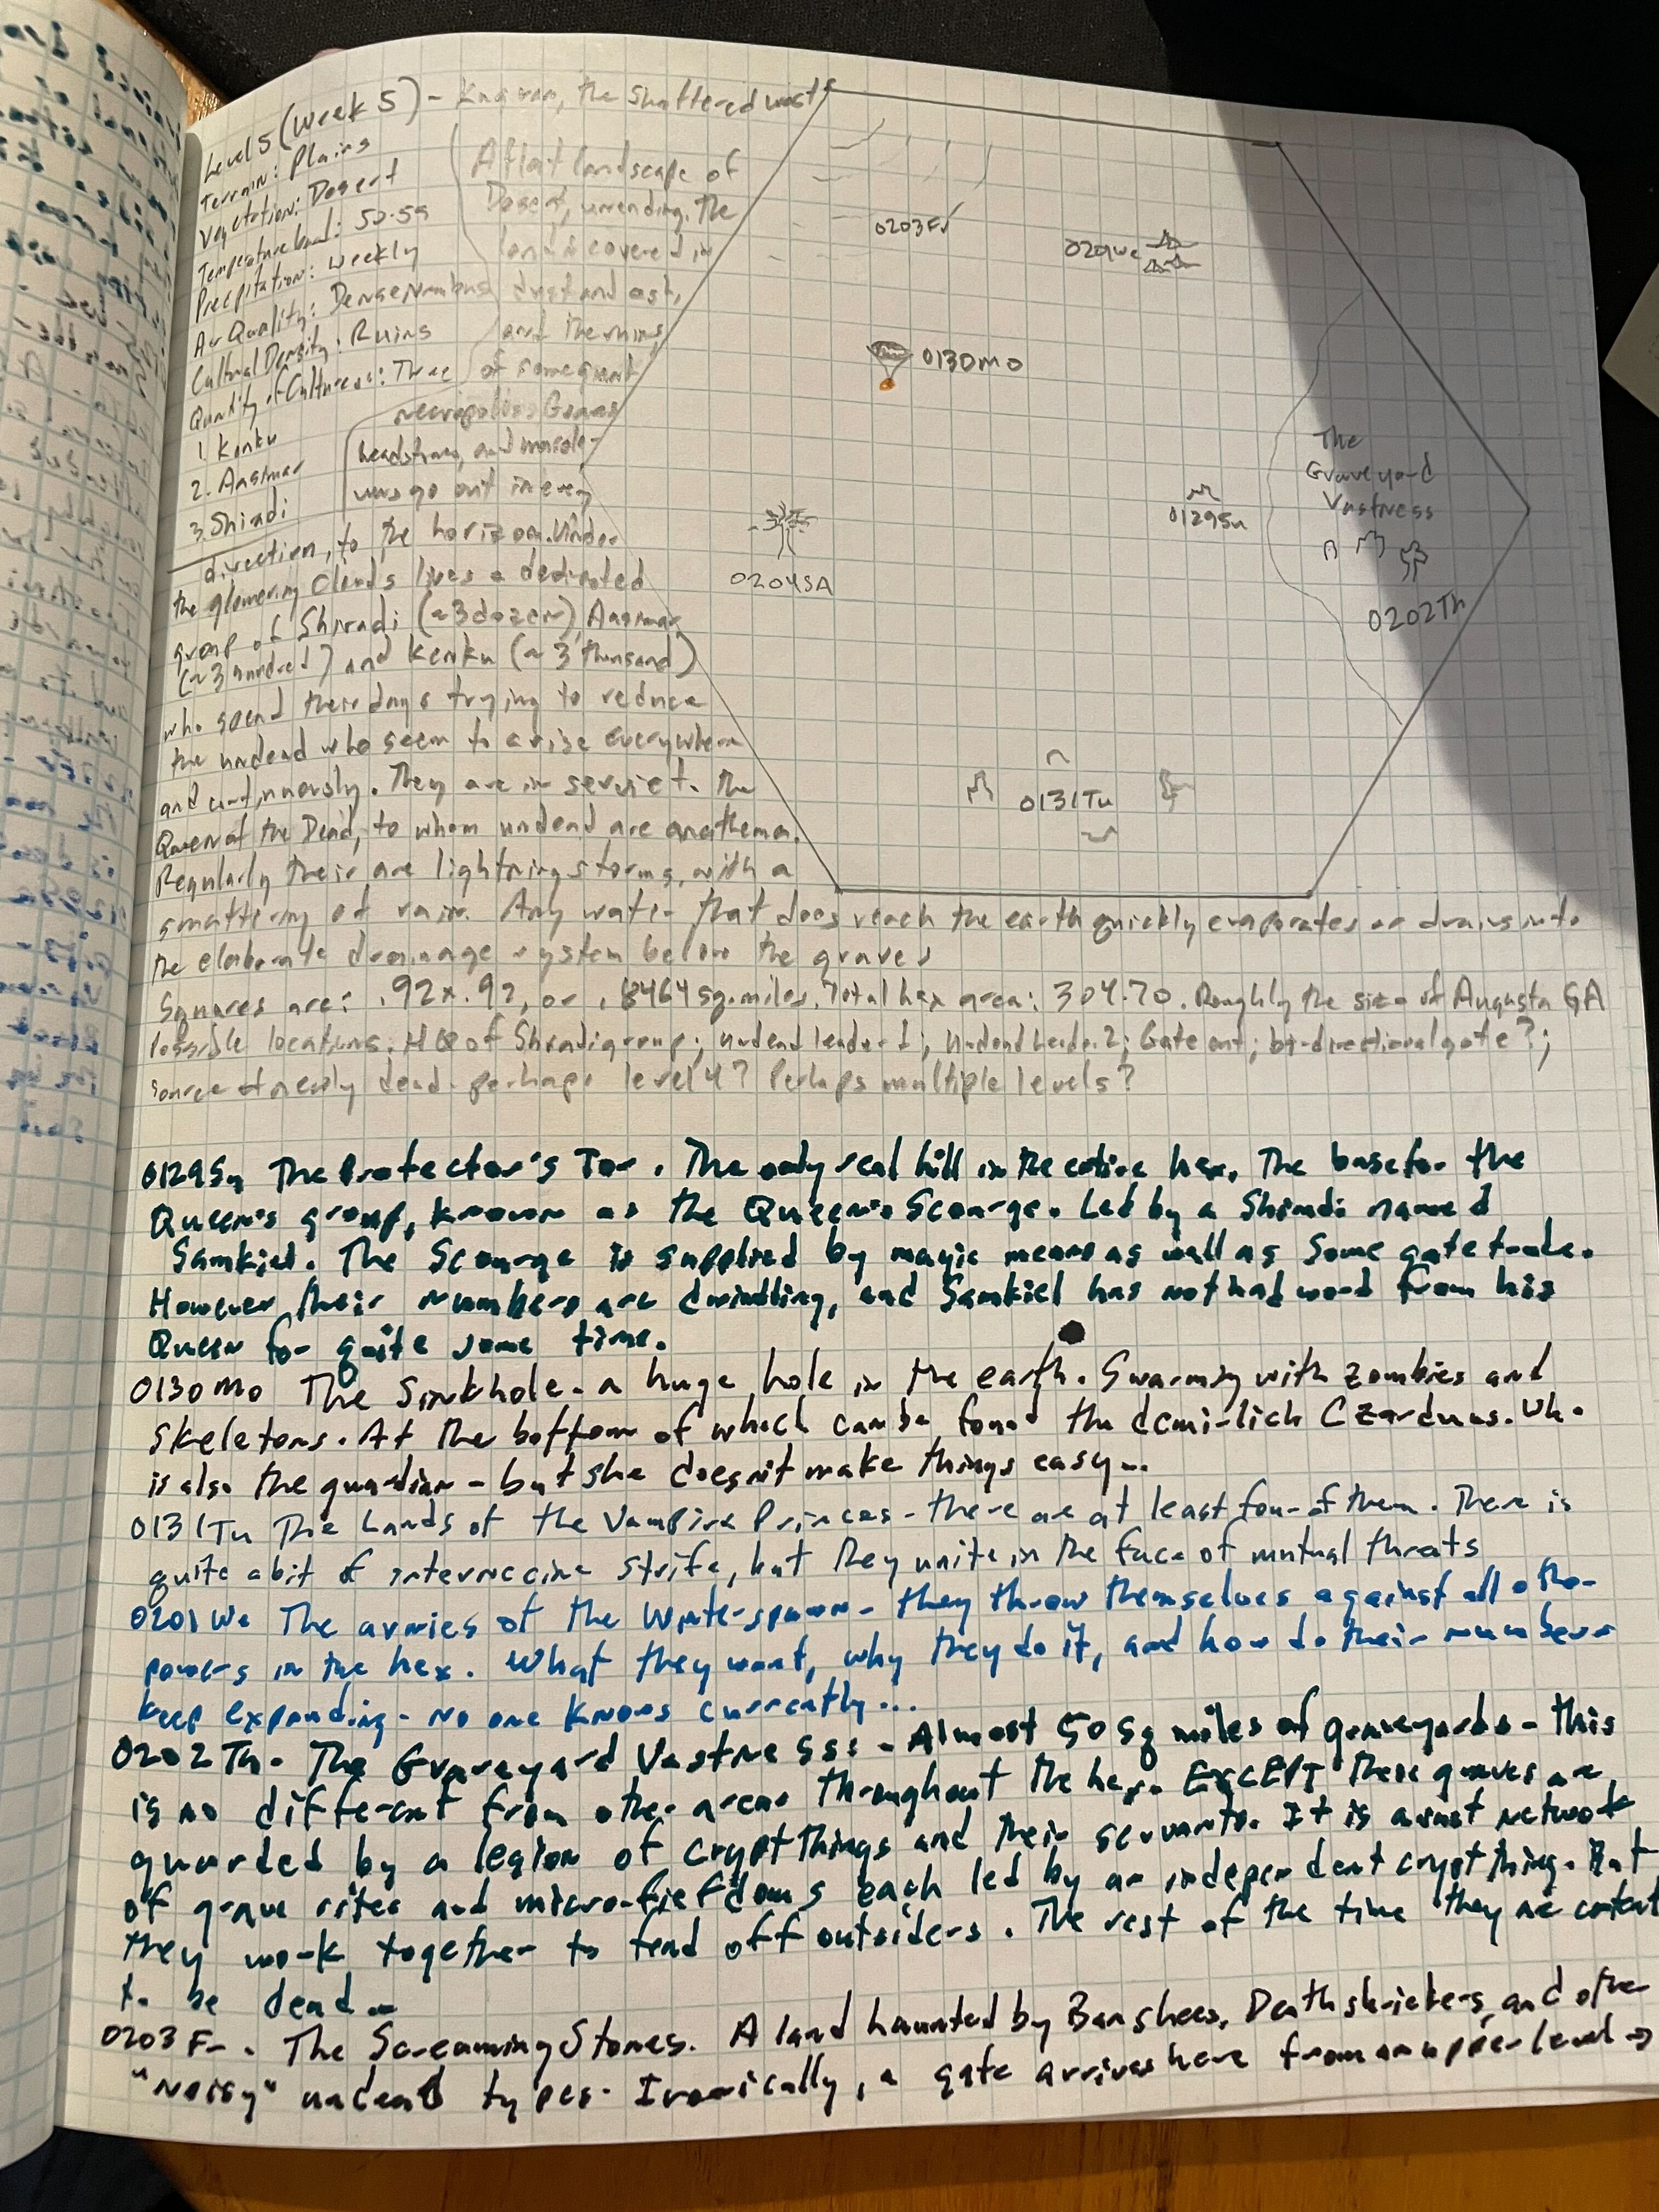 Level 5 (Week 5) - the shattered waste
Terrain: Plains
Vegetation: Desert
Temperature band: 50-59
Precipitation: Weekly
Air Quality: Dense
Cultural Density: Ruins
Quantity of Cultures: Three
1. Kenku
2. Aasimar
3. Shiradi
A flat landscape of
Desert, unending. The
land is covered in
dust and ash,
and the ruins
of some giant
necropolis. Graves
headstones, and mausole-
ums go out in every
direction, to the horizon. Under
the glowering clouds lives a dedicated
group of Shiradi (~3 dozen), Aasimar
(~3 hundred) and Kenku (~3 thousand)
who spend their days trying to reduce
the undead who seem to arise everywhere
and continuously. They are in service to the
Queen of the Dead, to whom undead are anathema.
Regularly their are lightning storms, with a
smattering of rain. Any water that does reach the earth quickly evaporates or drains into
the elaborate drainage system below the graves
Squares are: .92x.92, or .8464 sq. miles. Total hex area: 304.70. Roughly the size of Augusta GA
Possible locations: HQ of Shiradi group; undead leader 1; undead leader 2; Gate out; bi-directional gate?;
source of newly dead - perhaps level 4? Perhaps multiple levels?
0203Fr
0201We
0130Mo
The
Graveyard
Vastness
0129Su
0204SA
0202Th
0131Tu
0129Su The Protector's Tor. The only real hill in the entire hex. The base for the
Queen's group, known as the Queen's Scourge. Led by a Shiradi named
Samkiel. The Scourge is supplied by magic means as well as some gate trade.
However, their numbers are dwindling, and Samkiel has not had word from his
Queen for quite some time.
0130Mo The Sinkhole - a huge hole in the earth. Swarming with zombies and
skeletons. At the bottom of which can be found the demi-lich. Who
is also the guardian - but she doesn't make things easy...
0131Tu The Lands of the Vampire Princes - there are at least four of them. There is
quite a bit of internecine strife, but they unite in the face of mutual threats
0201We The armies of the Winterspawn - they throw themselves against all other
powers in the hex. What they want, why they do it, and how do their numbers
keep expanding - no one knows currently...
0202Th - The Graveyard Vastness: - Almost 50 sq miles of graveyards - this
is no different from other areas throughout the hex. EXCEPT these graves are
guarded by a legion of crypt things and their servants. It is a vast network
of grave sites and micro-fiefdoms each led by an independent crypt thing. But
they work together to fend off outsiders. The rest of the time they are content
to be dead -
0203Fr - The Screaming Stones. A land haunted by Banshees, Death shriekers, and other
"Noisy" undead types. Ironically, a gate arrives here from an upper level →